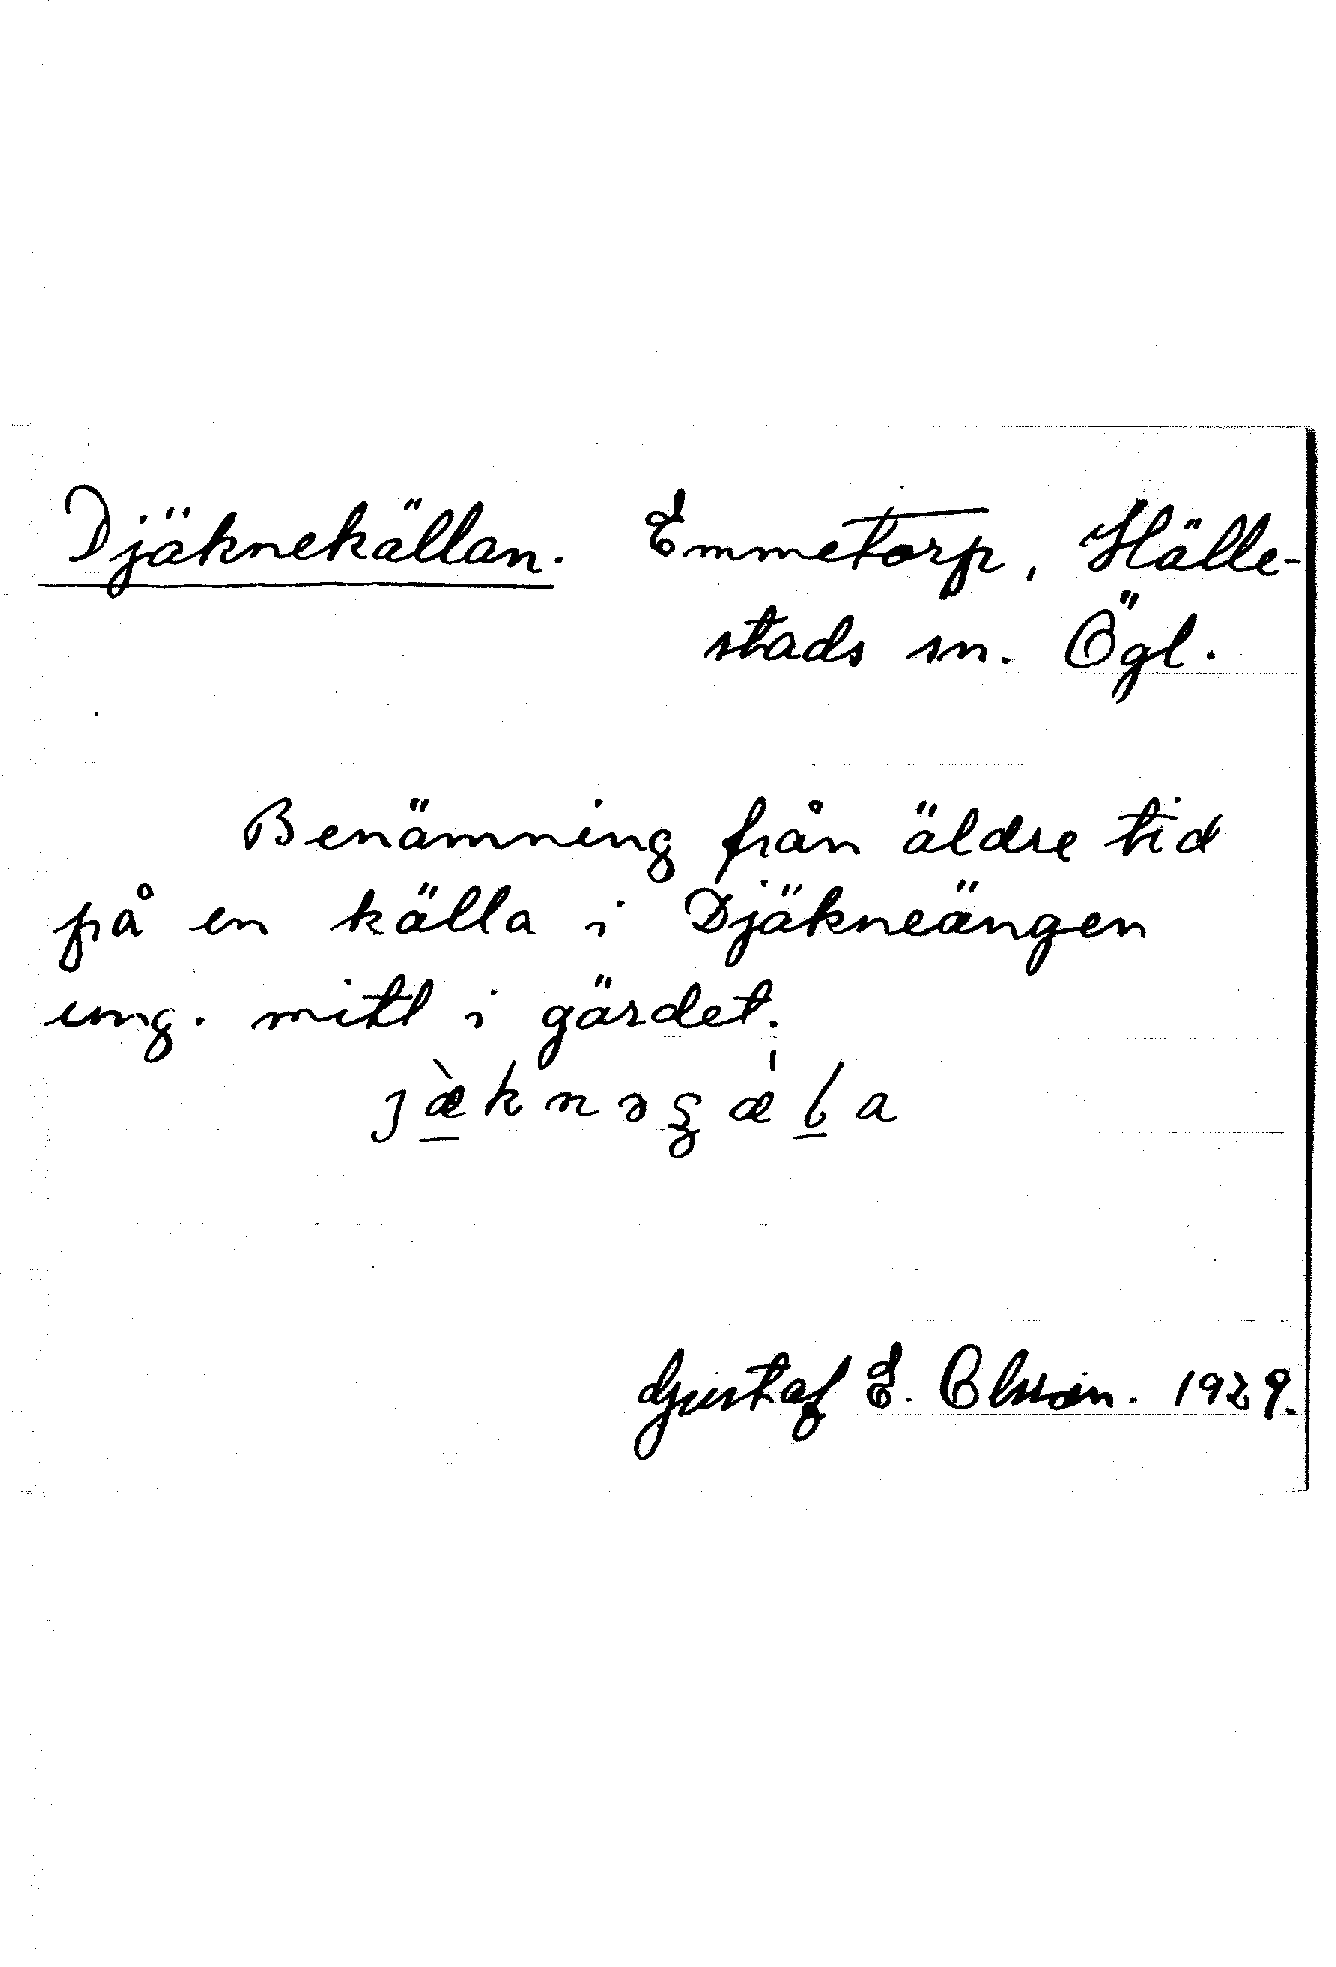 Djäknekällan. Emmetorp, Hälle-
stads sn. Ögl.
Benämning från äldre tid
på en källa i Djäkneängen
ung. mitt i gärdet.
Gustaf E. Olsson. 1929.